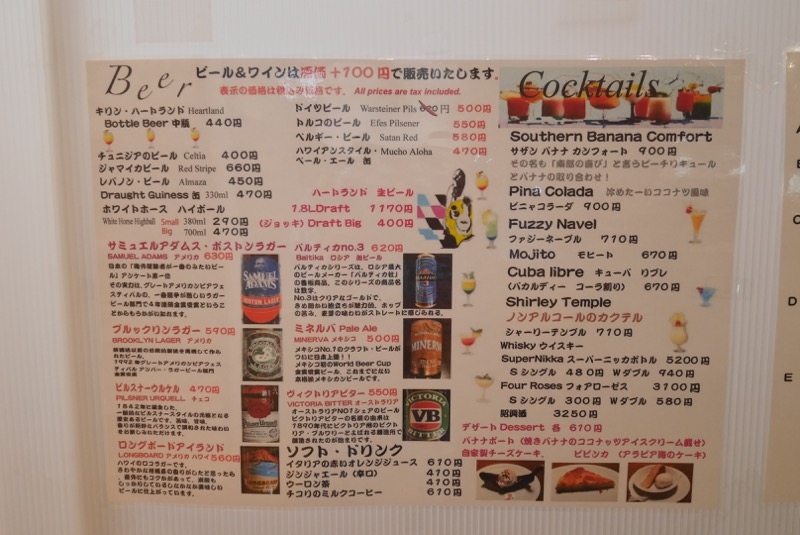 Beer
ビール＆ワインは原価＋100円で販売いたします。
表示の価格は税込み価格です、 All prices are tax included.
キリン・ハートランド Heartland
Bottle Beer 中瓶 440円
チュニジアのビール Celtia 400円
ジャマイカビール Red Stripe 660円
レバノン・ビール Almaza 450円
Draught Guiness 缶 330ml 470円
ホワイトホース ハイボール
White Horse Highball Small 380ml 290円
Big 700ml 470円
ドイツビール Warsteiner Pils 500円
トルコのビール Efes Pilsener 550円
ベルギー・ビール Satan Red 580円
ハワイアンスタイル・ Mucho Aloha 470円
ペール・エール 缶
ハートランド 生ビール
1.8LDraft 1170円
(ジョッキ) Draft Big 400円
サミュエルアダムス・ボストンラガー
SAMUEL ADAMS アメリカ 630円
バルティカno.3 620円
Baltika ロシア 缶ビール
バルティカシリーズは、ロシア最大
のビールメーカー「バルティカ社」
の看板商品、このシリーズの商品名
は数字。
No.3はクリアなゴールドで、
ブルックリンラガー 590円
BROOKLYN LAGER アメリカ
ミネルバ Pale Ale
MINERVA メキシコ 500円
メキシコNo.1のクラフト・ビールが
ついに日本上陸！！
メキシコ初のWorld Beer Cup
金賞受賞ビール、これまでにない
本格派メキシカンビールです。
ピルスナーウルケル 470円
PILSNER URQUELL チェコ
ヴィクトリアビター 550円
VICTORIA BITTER オーストラリア
オーストラリアNO1シェアのビール
ビクトリアビターの名前の由来は
1890年代にビクトリア州のビクト
リア・ブルワリーとよばれる醸造所で
醸造されたのが始まりです。
ロングボードアイランド
LONGBOARD アメリカ ハワイ560円
ハワイのロコラガーです。
ソフト・ドリンク
イタリアの赤いオレンジジュース 610円
ジンジャエール (辛口) 410円
ウーロン茶 410円
チコリのミルクコーヒー 610円
Cocktails
Southern Banana Comfort
サザン バナナ カンフォート 900円
その名も「南部の喜び」と言うピーチリキュール
とバナナの取り合わせ！
Pina Colada 冷めたーいココナツ風味
ピニャコラーダ 900円
Fuzzy Navel
ファジーネーブル 710円
Mojito モヒート 670円
Cuba libre キューバ リブレ
(バカルディー コーラ割り) 670円
Shirley Temple
ノンアルコールのカクテル
シャーリーテンプル 710円
Whisky ウイスキー
SuperNikka スーパーニッカボトル 5200円
S シングル 480円 W ダブル 940円
Four Roses フォアローゼス 3100円
S シングル 300円 W ダブル 580円
紹興酒 3250円
デザート Dessert 各 610円
バナナボート (焼きバナナのココナッツアイスクリーム載せ)
自家製チーズケーキ、 ビビンカ (アラビア海のケーキ)